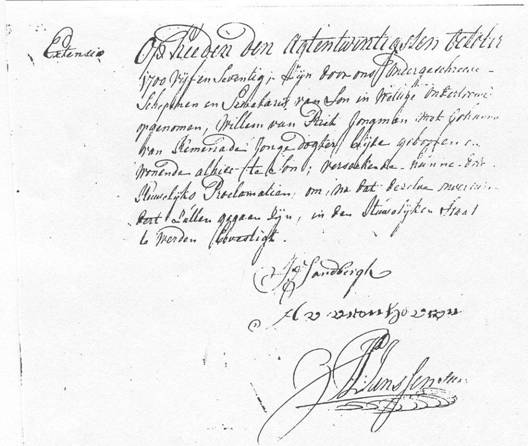 Extensie
Op Heeden den Agtentwintigsten October
1700 Vijf en Seventig; Zijn door ons Ondergeschreve
Schepenen en Secretaris van Son in Wettige Ondertrouw
opgenomen, Willem van Rick Jongman met Johanna
van Kemenade Jonge dogter, Beijde gebooren en
woonende alhier te Son; versoekende hunne drie
Huwelijks Proclamatien, om, na dat deselve
sullen gegaan zijn, in den Huwelijken Staat
te werden Bevestigt.
Sandbergh
A v vronhoven
Janssen